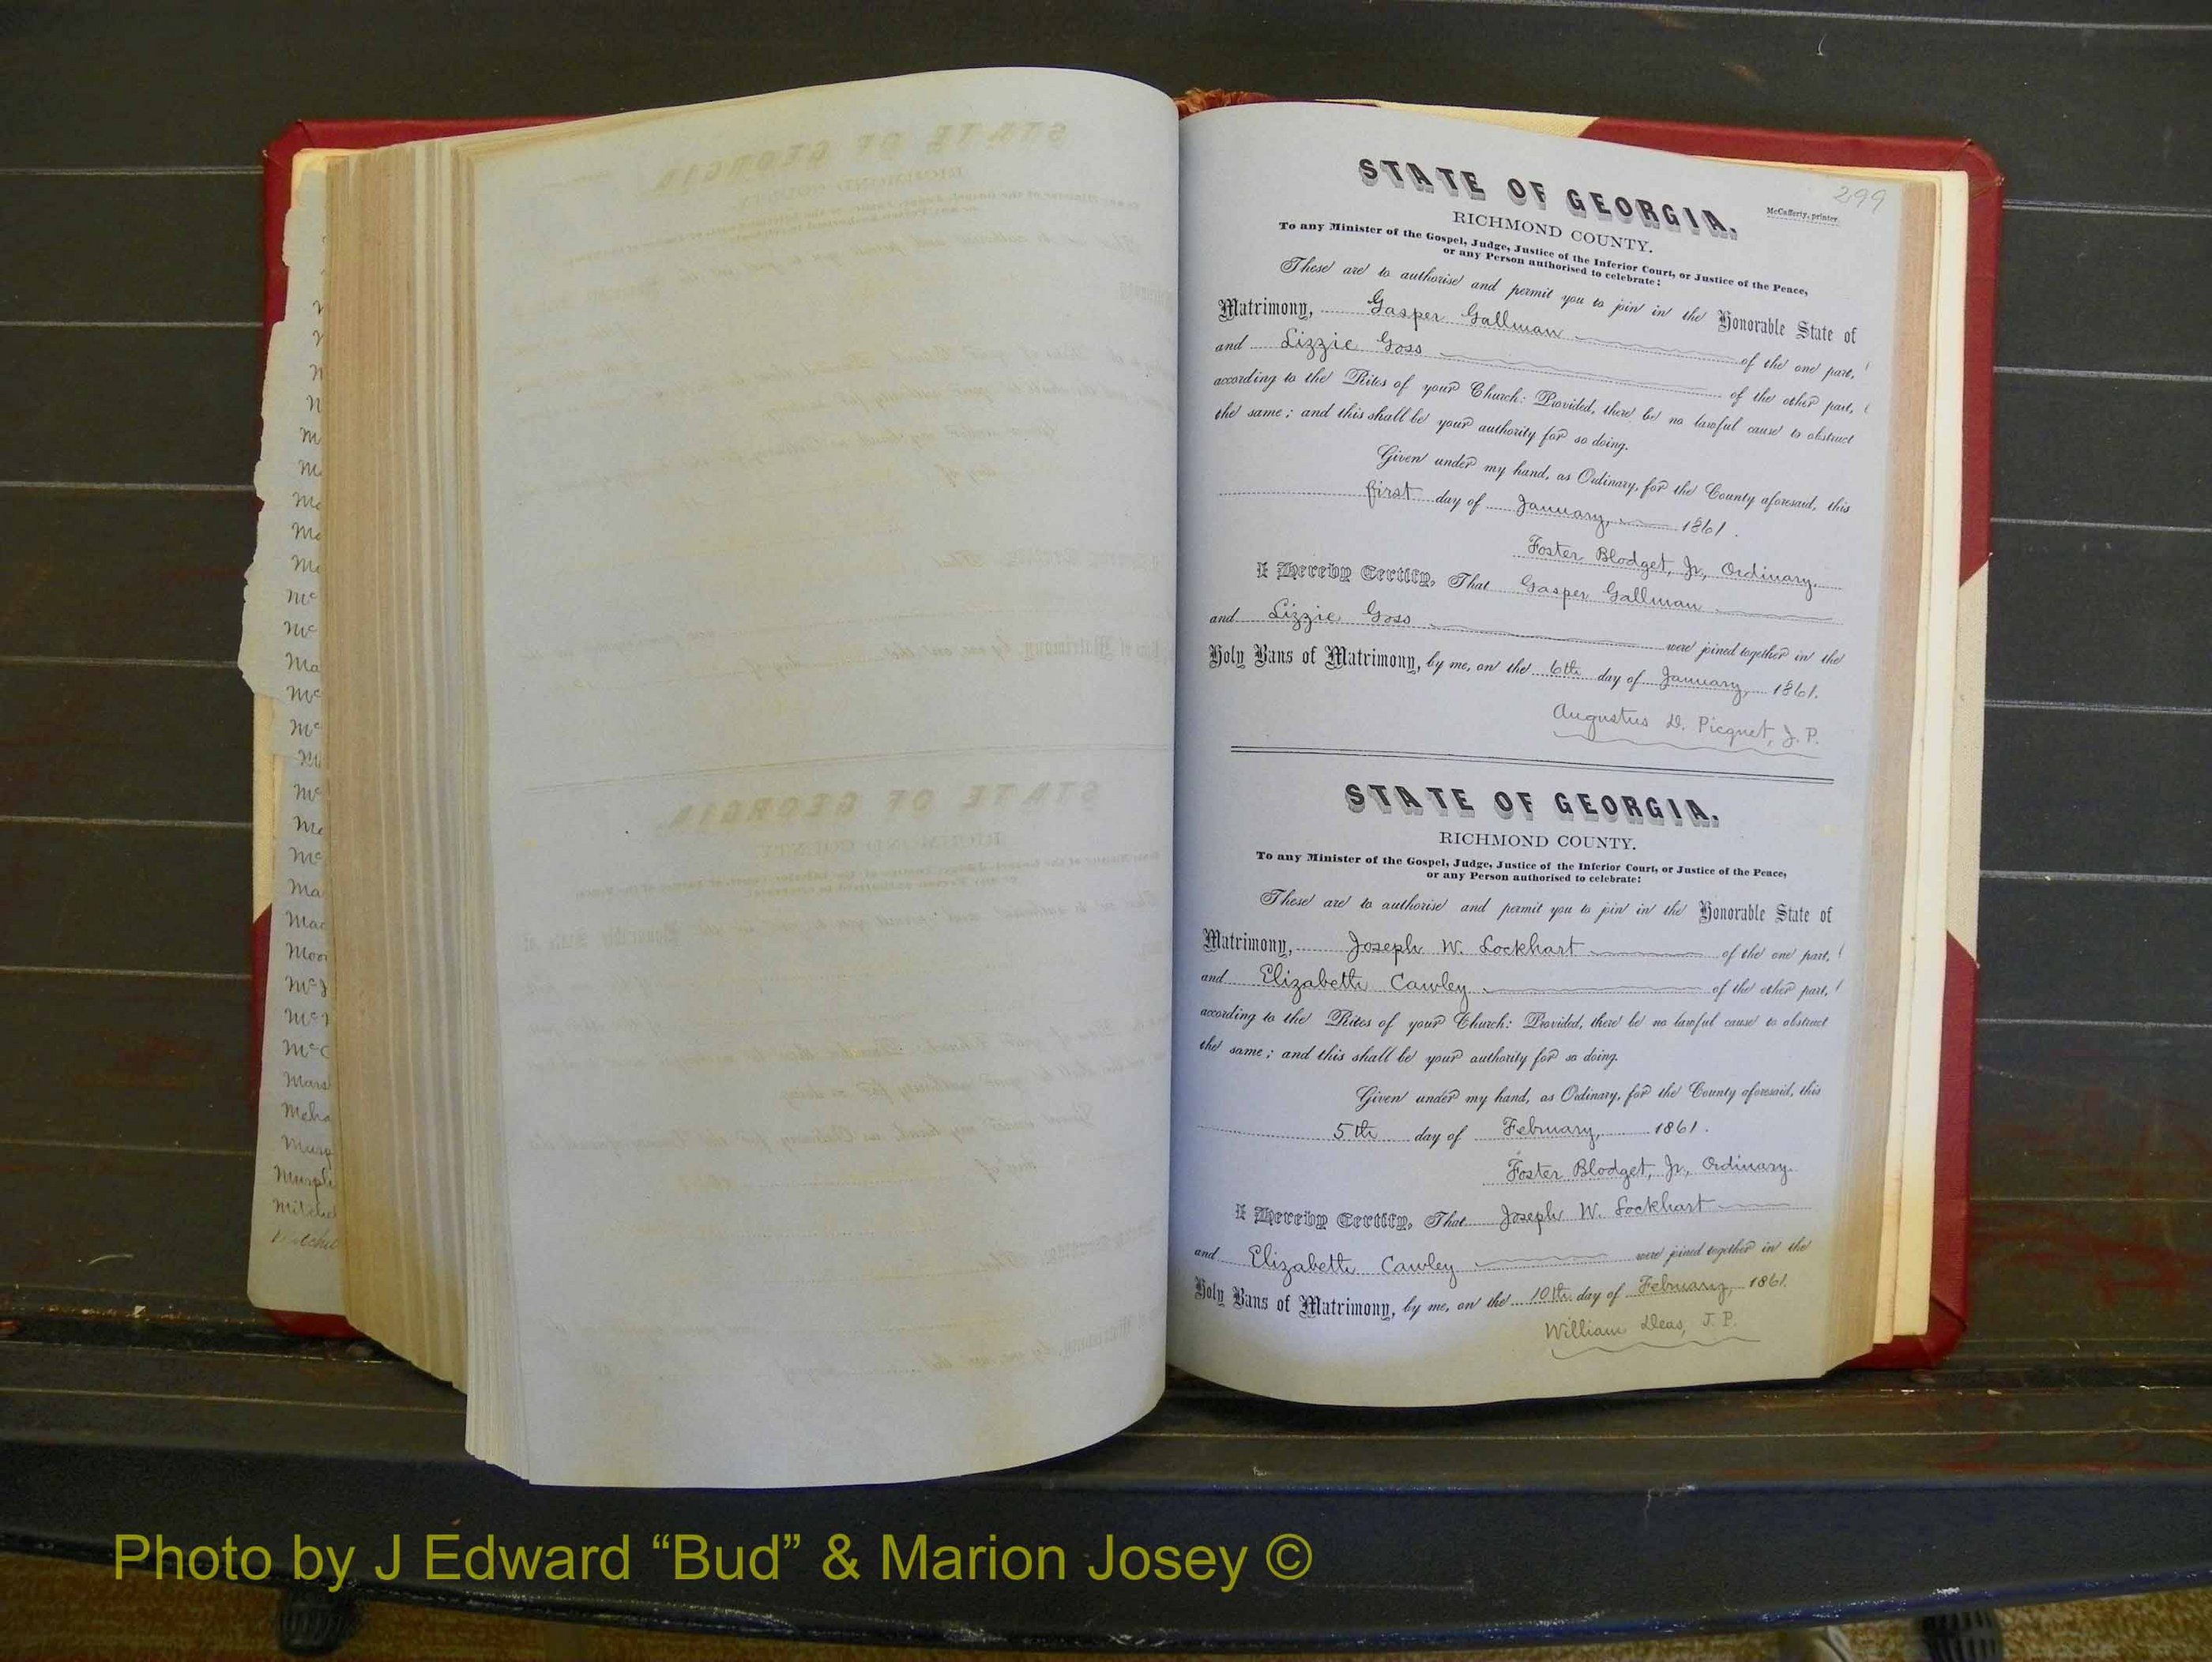 299
STATE OF GEORGIA.
McCafferty, printer.
RICHMOND COUNTY.
To any Minister of the Gospel, Judge, Justice of the Inferior Court, or Justice of the Peace,
or any Person authorised to celebrate:
These are to authorise and permit you to join in the Honorable State of
Matrimony, Gasper Gallman of the one part,
and Lizzie Goss of the other part,
according to the Rites of your Church: Provided, there be no lawful cause to obstruct
the same; and this shall be your authority for so doing.
Given under my hand, as Ordinary, for the County aforesaid, this
first day of January, 1861.
Foster Blodget, Jr., Ordinary.
I Hereby Certify, That Gasper Gallman
and Lizzie Goss were joined together in the
Holy Bans of Matrimony, by me, on the 6th day of January, 1861.
Augustus D. Picquet, J. P.
STATE OF GEORGIA.
RICHMOND COUNTY.
To any Minister of the Gospel, Judge, Justice of the Inferior Court, or Justice of the Peace,
or any Person authorised to celebrate:
These are to authorise and permit you to join in the Honorable State of
Matrimony, Joseph W. Lockhart of the one part,
and Elizabeth Cawley of the other part,
according to the Rites of your Church: Provided, there be no lawful cause to obstruct
the same; and this shall be your authority for so doing.
Given under my hand, as Ordinary, for the County aforesaid, this
5th day of February, 1861.
Foster Blodget, Jr., Ordinary.
I Hereby Certify, That Joseph W. Lockhart
and Elizabeth Cawley were joined together in the
Holy Bans of Matrimony, by me, on the 10th day of February, 1861.
William Deas, J. P.
Photo by J Edward “Bud” & Marion Josey ©